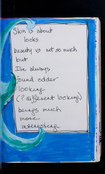 Skin is about
looks
beauty is not so much
but
I've always
found odder
looking
(? different looking)
beings much
more
interesting